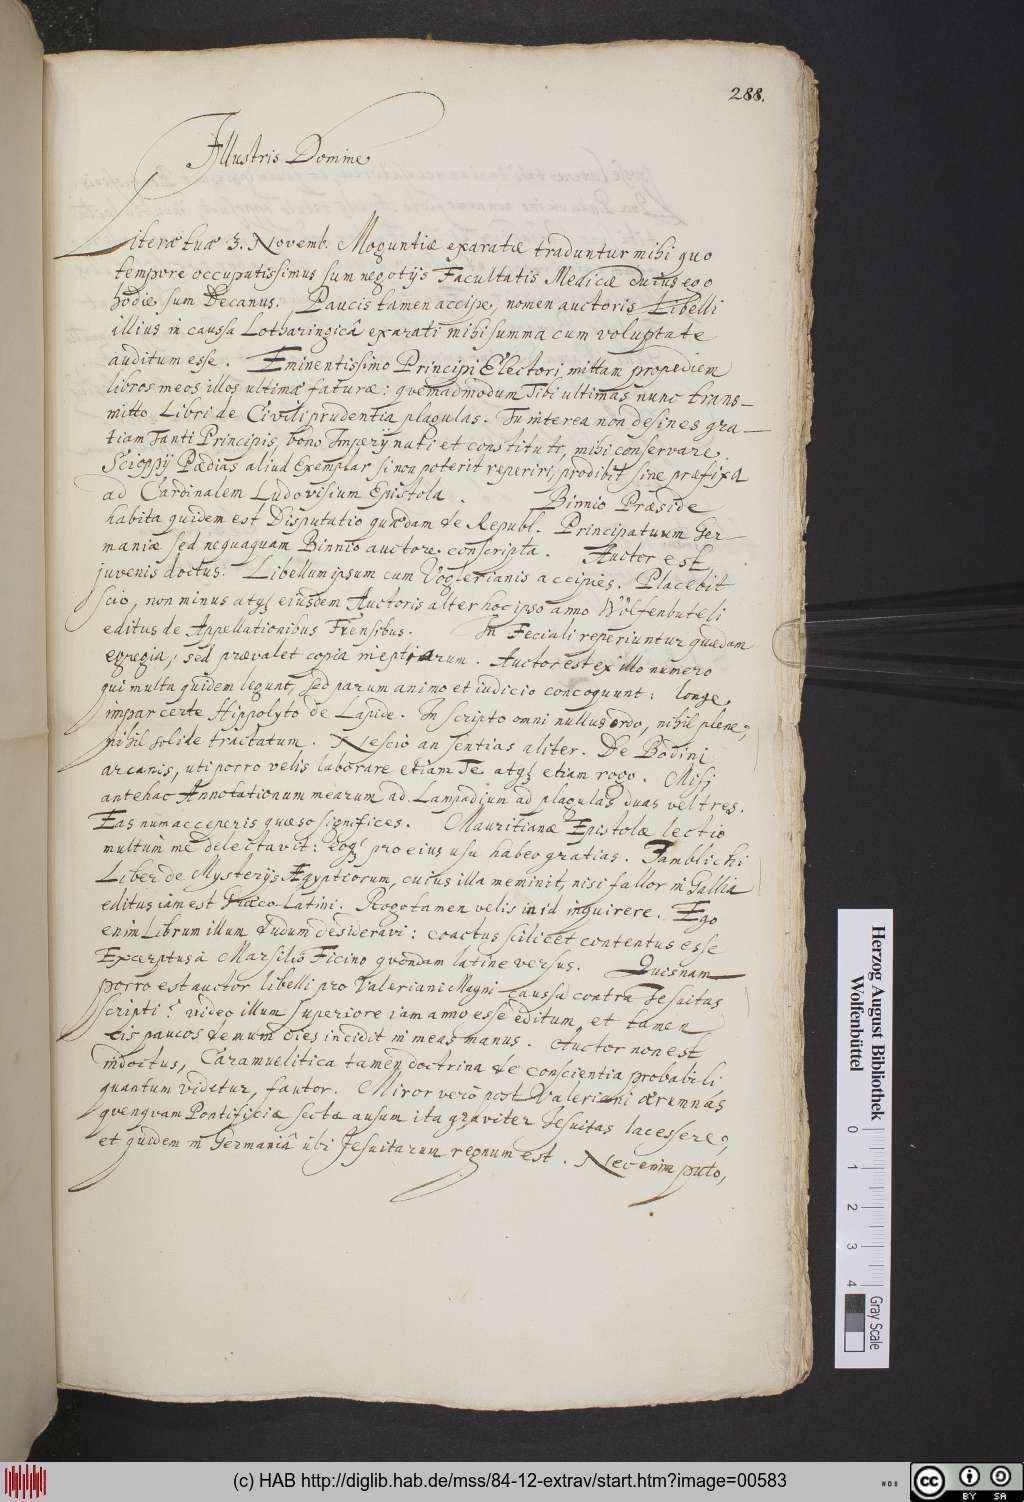 288.
Illustris Domine
Literæ tuæ 3. Novemb. Moguntiæ exaratæ traduntur mihi quo
tempore occupatissimus sum negotijs Facultatis Medicæ cuius ego
hodie sum Decanus. Paucis tamen accipe, nomen auctoris Libelli
illius in caussa Lotharingicâ exarati mihi summa cum voluptate
auditum esse. Eminentissimo Principi Electori mittam propediem
libros meos illos ultimæ faturæ: quemadmodum Tibi ultimas nunc trans-
mitto Libri de Civili prudentia plagulas. Tu interea non desines gra-
tiam Tanti Principis, bono Imperij nati et constituti, mihi conservare.
Scioppij Pædias aliud Exemplar si non poterit reperiri, prodibit sine præfixa
ad Cardinalem Ludovisium Epistola. Binnio Præside
habita quidem est Disputatio quædam de Republ. Principatuum Ger-
maniæ sed nequaquam Binnio auctore conscripta. Auctor est
juvenis doctus. Libellum ipsum cum Voglerianis accipies. Placebit
scio, non minus atq; eiusdem Auctoris alter hoc ipso anno Wolfenbuteli
editus de Appellationibus Frensibus. In Feciali reperiuntur quædam
egregia, sed prævalet copia ineptiarum. Auctor est ex illo numero
qui multa quidem legunt, sed parum animo et iudicio concoquunt: longe
impar certe Hippolyto de Lapide. In scripto omni nullus ordo, nihil plene,
nihil solide tractatum. Nescio an sentias aliter. De Bodini
arcanis, uti porro velis laborare etiam Te atq; etiam rogo. Misi
antehac Annotationum mearum ad Lampadium ad plagulas duas vel tres.
Eas num acceperis quæso significes. Mauritianæ Epistolæ lectio
multum me delectavit: eoq; pro eius usu habeo gratias. Jamblichi
Liber de Mysterijs Ægyptiorum, cuius illa meminit, nisi fallor in Gallia
editus iam est Græco-Latini. Rogo tamen velis in id inquirere. Ego
enim Librum illum dudum desideravi: coactus scilicet contentus esse
Excerptis à Marsilio Ficino quondam latine versus. Quisnam
porro est auctor libelli pro Valeriani Magni caussa contra Jesuitas
scripti? video illum superiore iam anno esse editum, et tamen
his paucos demum dies incidit in meas manus. Auctor non est
indoctus, Caramuelitica tamen doctrina de conscientia probabili,
quantum videtur, fautor. Miror vero post Valeriani ærumnas
quenquam Pontificiæ sectæ ausum ita graviter Jesuitas lacessere,
et quidem in Germaniâ ubi Jesuitarum regnum est. Nec enim puto,
Herzog August Bibliothek
Wolfenbüttel
0 1 2 3 4
Gray Scale
(c) HAB http://diglib.hab.de/mss/84-12-extrav/start.htm?image=00583
cc BY SA